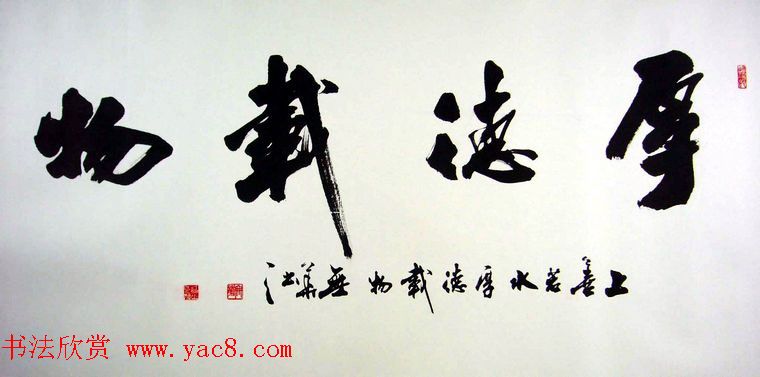 厚德載物
上善若水厚德載物
书法欣赏 www.yac8.com